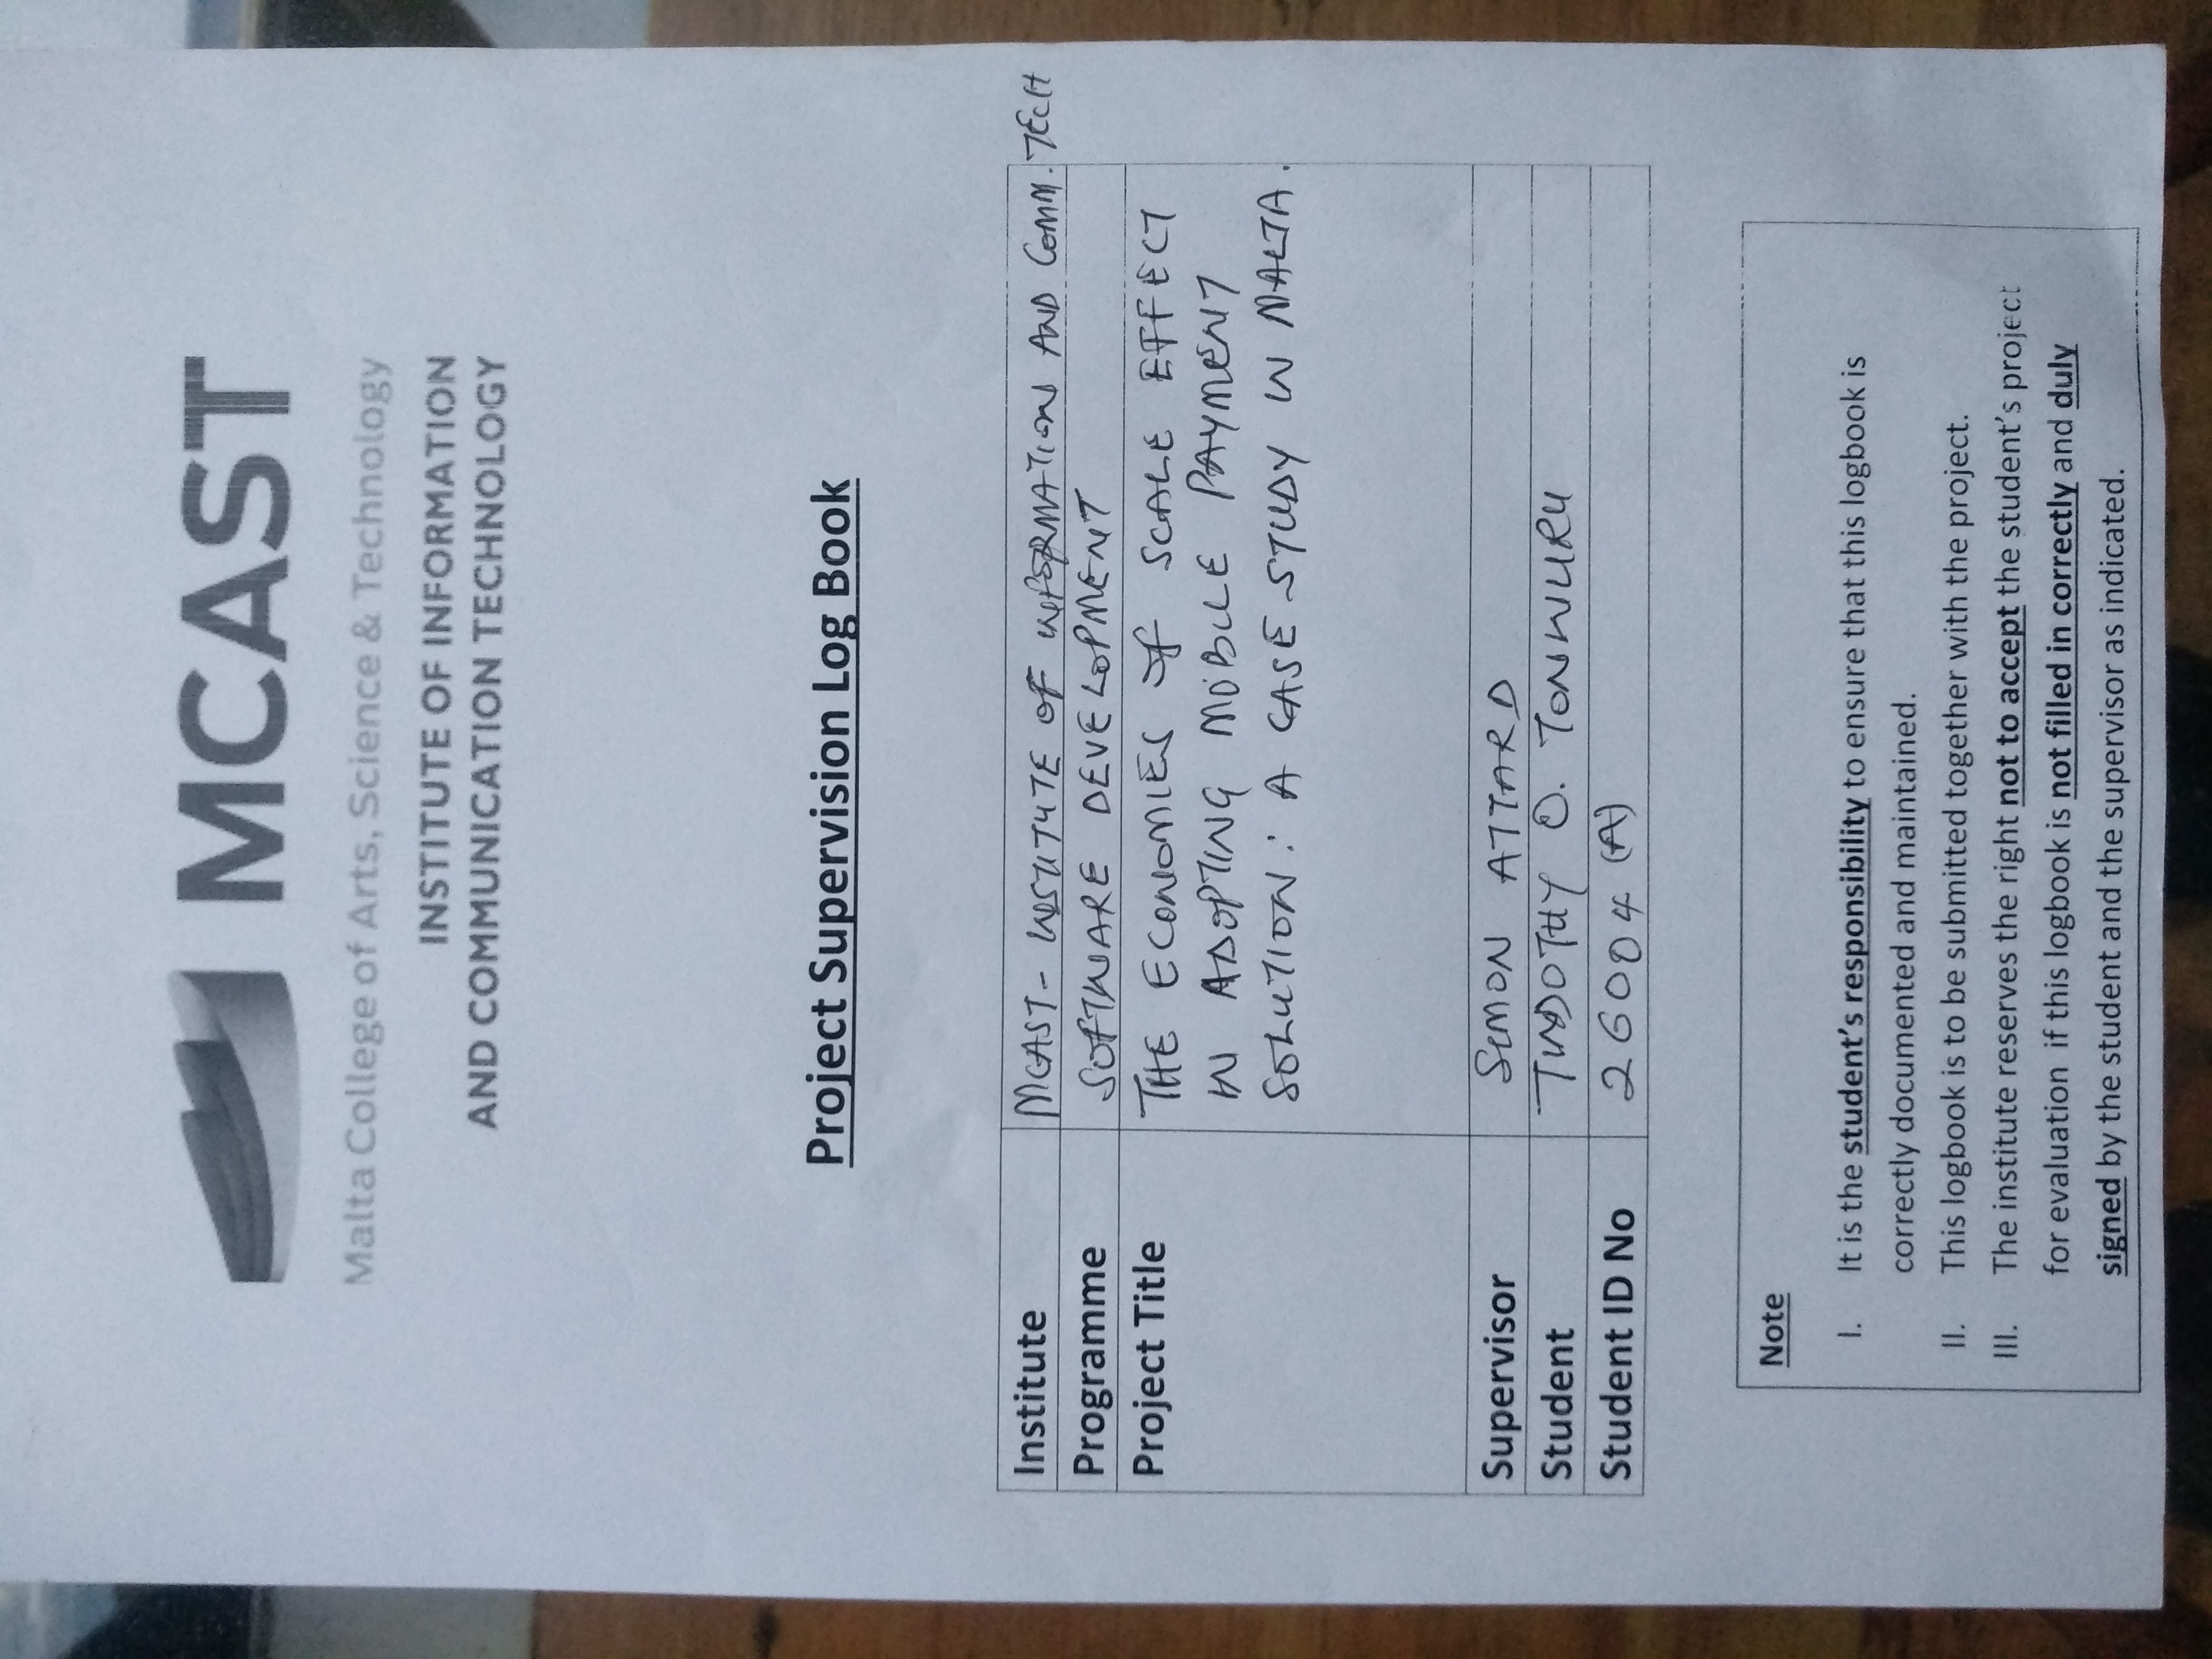 MCAST
Malta College of Arts, Science & Technology
INSTITUTE OF INFORMATION
AND COMMUNICATION TECHNOLOGY
Project Supervision Log Book
Institute MCAST- INSTITUTE OF INFORMATION AND COMM. TECH
Programme SOFTWARE DEVELOPMENT
Project Title THE ECONOMIES OF SCALE EFFECT
IN ADOPTING MOBILE PAYMENT
SOLUTION: A CASE STUDY IN MALTA.
Supervisor SIMON ATTARD
Student TIMOTHY O. TONWURU
Student ID No 26004 (A)
Note
I. It is the student's responsibility to ensure that this logbook is
correctly documented and maintained.
II. This logbook is to be submitted together with the project.
III. The institute reserves the right not to accept the student's project
for evaluation if this logbook is not filled in correctly and duly
signed by the student and the supervisor as indicated.